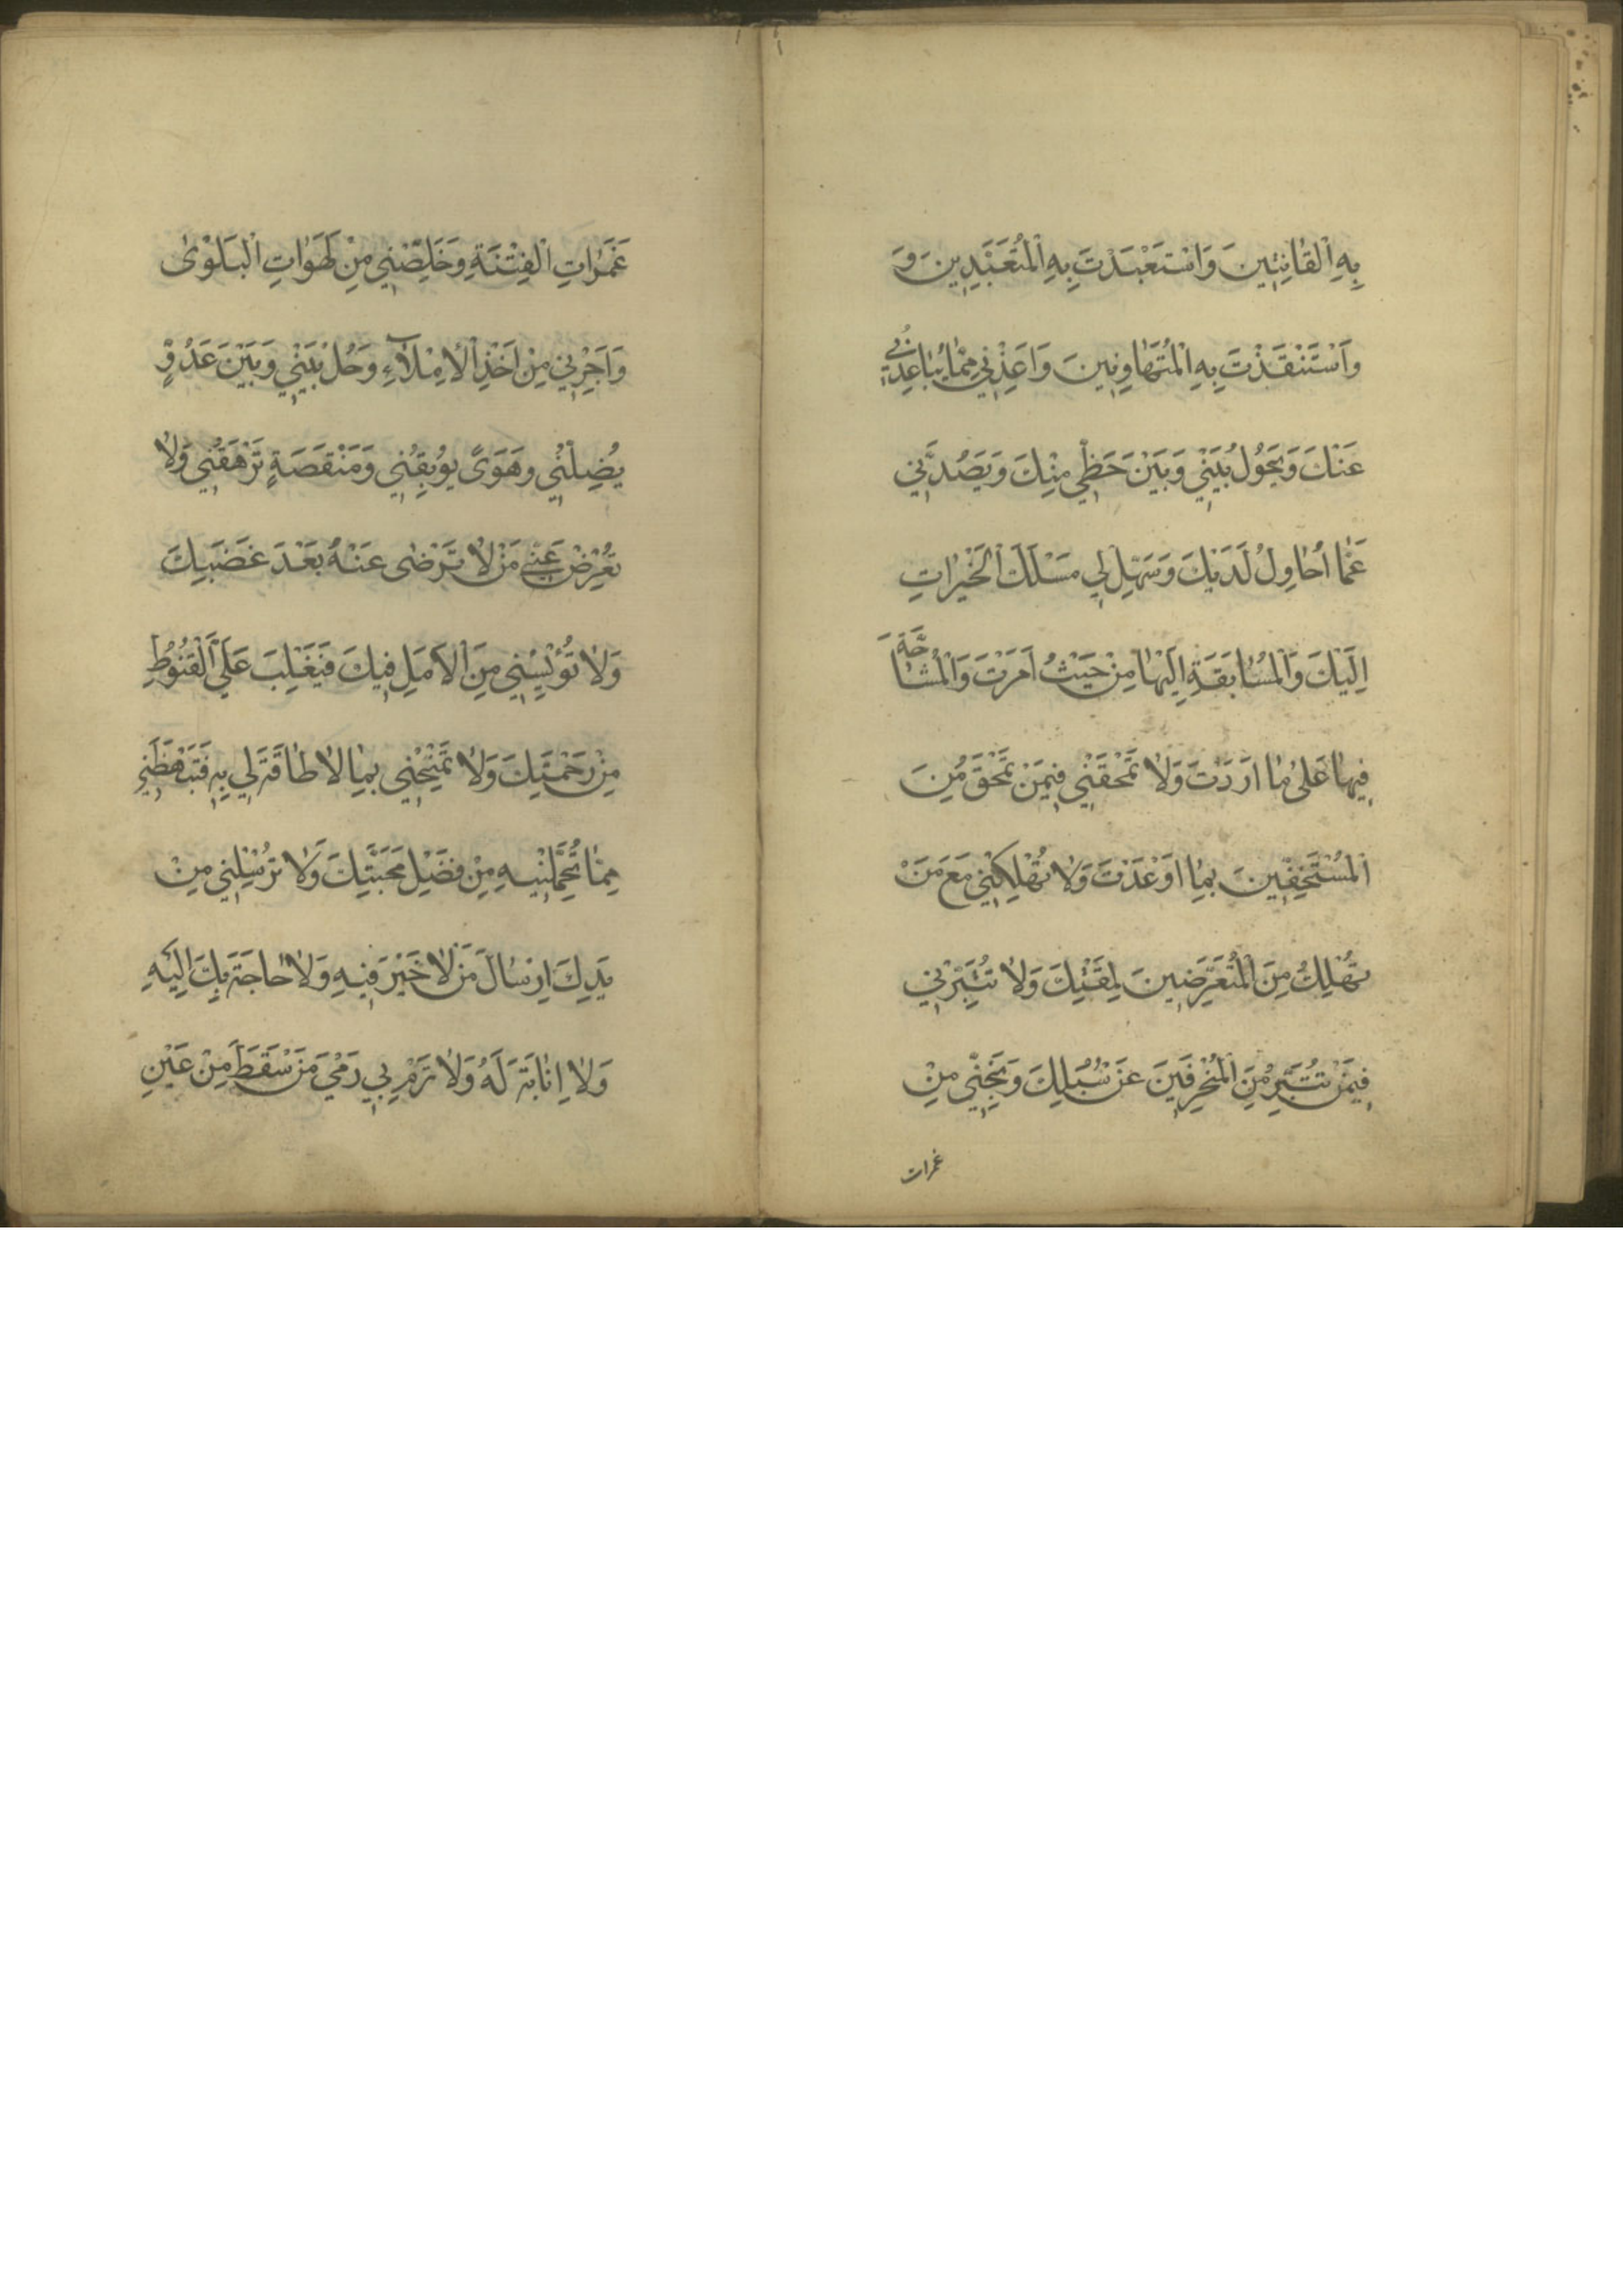 بِهِ الْقَانِتِينَ وَاسْتَعْبَدْتَ بِهِ الْمُتَعَبِّدِينَ وَ
وَاسْتَنْقَذْتَ بِهِ الْمُتَهَاوِنِينَ وَاَعِذْنِي مِمَّا يُبَاعِدُنِي
عَنْكَ وَيَحُولُ بَيْنِي وَبَيْنَ حَظِّي مِنْكَ وَيَصُدُّنِي
عَمَّا اُحَاوِلُ لَدَيْكَ وَسَهِّلْ لِي مَسْلَكَ الْخَيْرَاتِ
اِلَيْكَ وَالْمُسَابَقَةِ اِلَيْهَا مِنْ حَيْثُ اَمَرْتَ وَالْمُشَاحَّةَ
فِيهَا عَلَى مَا اَرَدْتَ وَلَا تَمْحَقْنِي فِيمَنْ تَمْحَقُ مِنَ
الْمُسْتَخِفِّينَ بِمَا اَوْعَدْتَ وَلَا تُهْلِكْنِي مَعَ مَنْ
تُهْلِكُ مِنَ الْمُتَعَرِّضِينَ لِمَقْتِكَ وَلَا تُتَبِّرْنِي
فِيمَنْ تُتَبِّرُ مِنَ الْمُنْحَرِفِينَ عَنْ سُبُلِكَ وَنَجِّنِي مِنْ
غمرات
غَمَرَاتِ الْفِتْنَةِ وَخَلِّصْنِي مِنْ لَهَوَاتِ الْبَلْوَى
وَاَجِرْنِي مِنْ اَخْذِ الْاِمْلَآءِ وَحُلْ بَيْنِي وَبَيْنَ عَدُوٍّ
يُضِلُّنِي وَهَوًى يُوبِقُنِي وَمَنْقَصَةٍ تَرْهَقُنِي وَلَا
تُعْرِضْ عَنِّي مَنْ لَا تَرْضَى عَنْهُ بَعْدَ غَضَبِكَ
وَلَا تُؤْيِسْنِي مِنَ الْاَمَلِ فِيكَ فَيَغْلِبَ عَلَيَّ الْقُنُوطُ
مِنْ رَحْمَتِكَ وَلَا تَمْنَحْنِي بِمَا لَا طَاقَةَ لِي بِهِ فَتَبْهَظَنِي
مِمَّا تُحَمِّلُنِيهِ مِنْ فَضْلِ مَحَبَّتِكَ وَلَا تُرْسِلْنِي مِنْ
يَدِكَ اِرْسَالَ مَنْ لَا خَيْرَ فِيهِ وَلَا حَاجَةَ بِكَ اِلَيْهِ
وَلَا اِنَابَةَ لَهُ وَلَا تَرْمِ بِي رَمْيَ مَنْ سَقَطَ مِنْ عَيْنِ